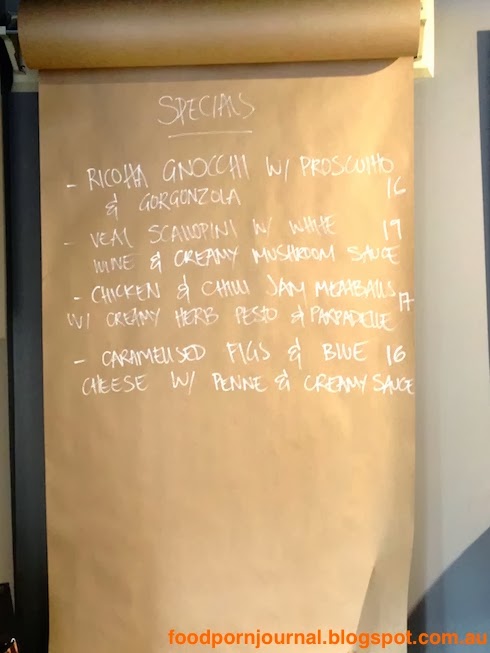 SPECIALS
- RICOTTA GNOCCHI W/ PROSCUITTO
& GORGONZOLA 16
- VEAL SCALLOPINI W/ WHITE 17
WINE & CREAMY MUSHROOM SAUCE
- CHICKEN & CHILLI JAM MEATBALLS 17
W/ CREAMY HERB PESTO & PARPADELLE
- CARAMELISED FIGS & BLUE 16
CHEESE W/ PENNE & CREAMY SAUCE
foodpornjournal.blogspot.com.au